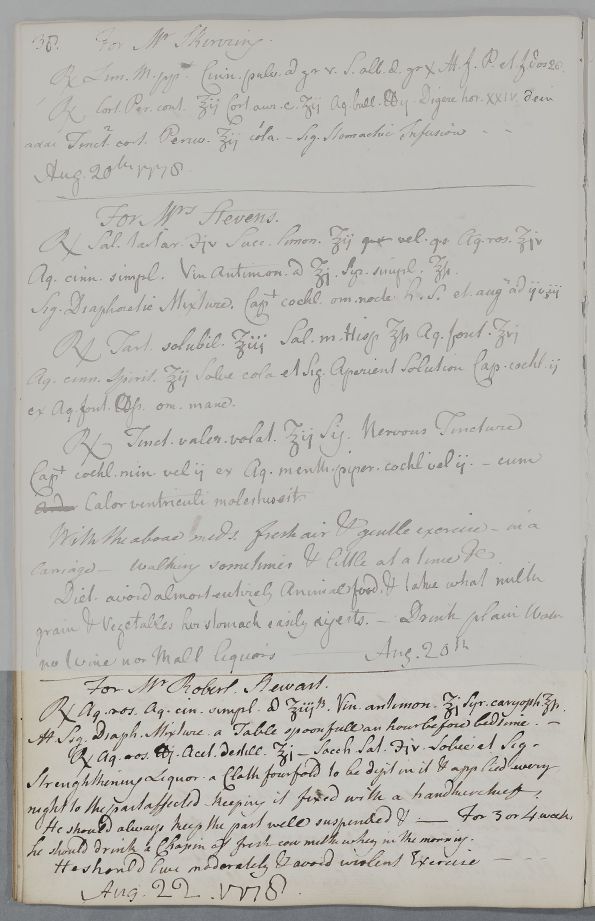 38. For Mr Skirving.
℞ Lim. M. pp. Cinn. pulv. a gr v. S. alb. d. gr x M. f. P. et f. dos 20.
℞ Cort. Per. cont. ℥ij Cort aur. c. ʒij Aq. bull. ij. Digere hor. XXIV. dein
adde Tinct. cort. Peruv. ℥ij cola. – Sig. Stomachic Infusion
Aug. 20th 1778.
For Mrs Stevens.
℞ Sal. tartar. ʒiv Succ. limon. ℥ij vel. qs. Aq. ros. ℥iv
Aq. cinn. simpl. Vin Antimon. a ℥j. Syr. simpl. ℥ſs.
Sig. Diaphoretic Mixture. Capt cochl. om. nocte h. S. et. augd ad ij vel iij
℞ Tart. solubil. ℥iij Sal. m. Hisp ℥ſs Aq. font. ℥vj
Aq. cinn. spirit. ℥ij Solve cola et Sig. Aperient Solution Cap. cochl. ij
ex Aq. font. om. mane.
℞ Tinct. valer. volat. ℥ij Sig. Nervous Tincture
Capt cochl. min. vel ij ex Aq. menth. piper. cochl vel ij. – cum
Calor ventriculi molestus sit
With the above meds. fresh air & gentle exercise – in a
Carriage – walking sometimes & little at a time &c
Diet. avoid almost entirely Animal food. & take what milk
grain & Vegetables her stomach easily digests. – Drink plain Water
no Wine nor Malt liquors Aug. 20th
For Mr Robert Stewart.
℞ Aq. ros. Aq. cin. simpl. a ℥iijſs. Vin. antimon. ℥j Syr. caryoph. ℥ſs.
M Sig. Diaph. Mixture. a Table spoonfull an hour before bedtime. –
℞ Aq. ros. j. Acet. destill. ℥j – Sacch Sat. ʒiv. Solve et Sig.
Strenghthining Liquor a Cloth four fold to be dipt in it & applied every
night to the part affected keeping it fixed with a handkercheif.
He should always keep the part well suspended & — For 3 or 4 weeks
he should drink a Chapin of fresh cow milk whey in the morning.
He should live moderately & avoid violent Exercise —
Aug. 22. 1778.